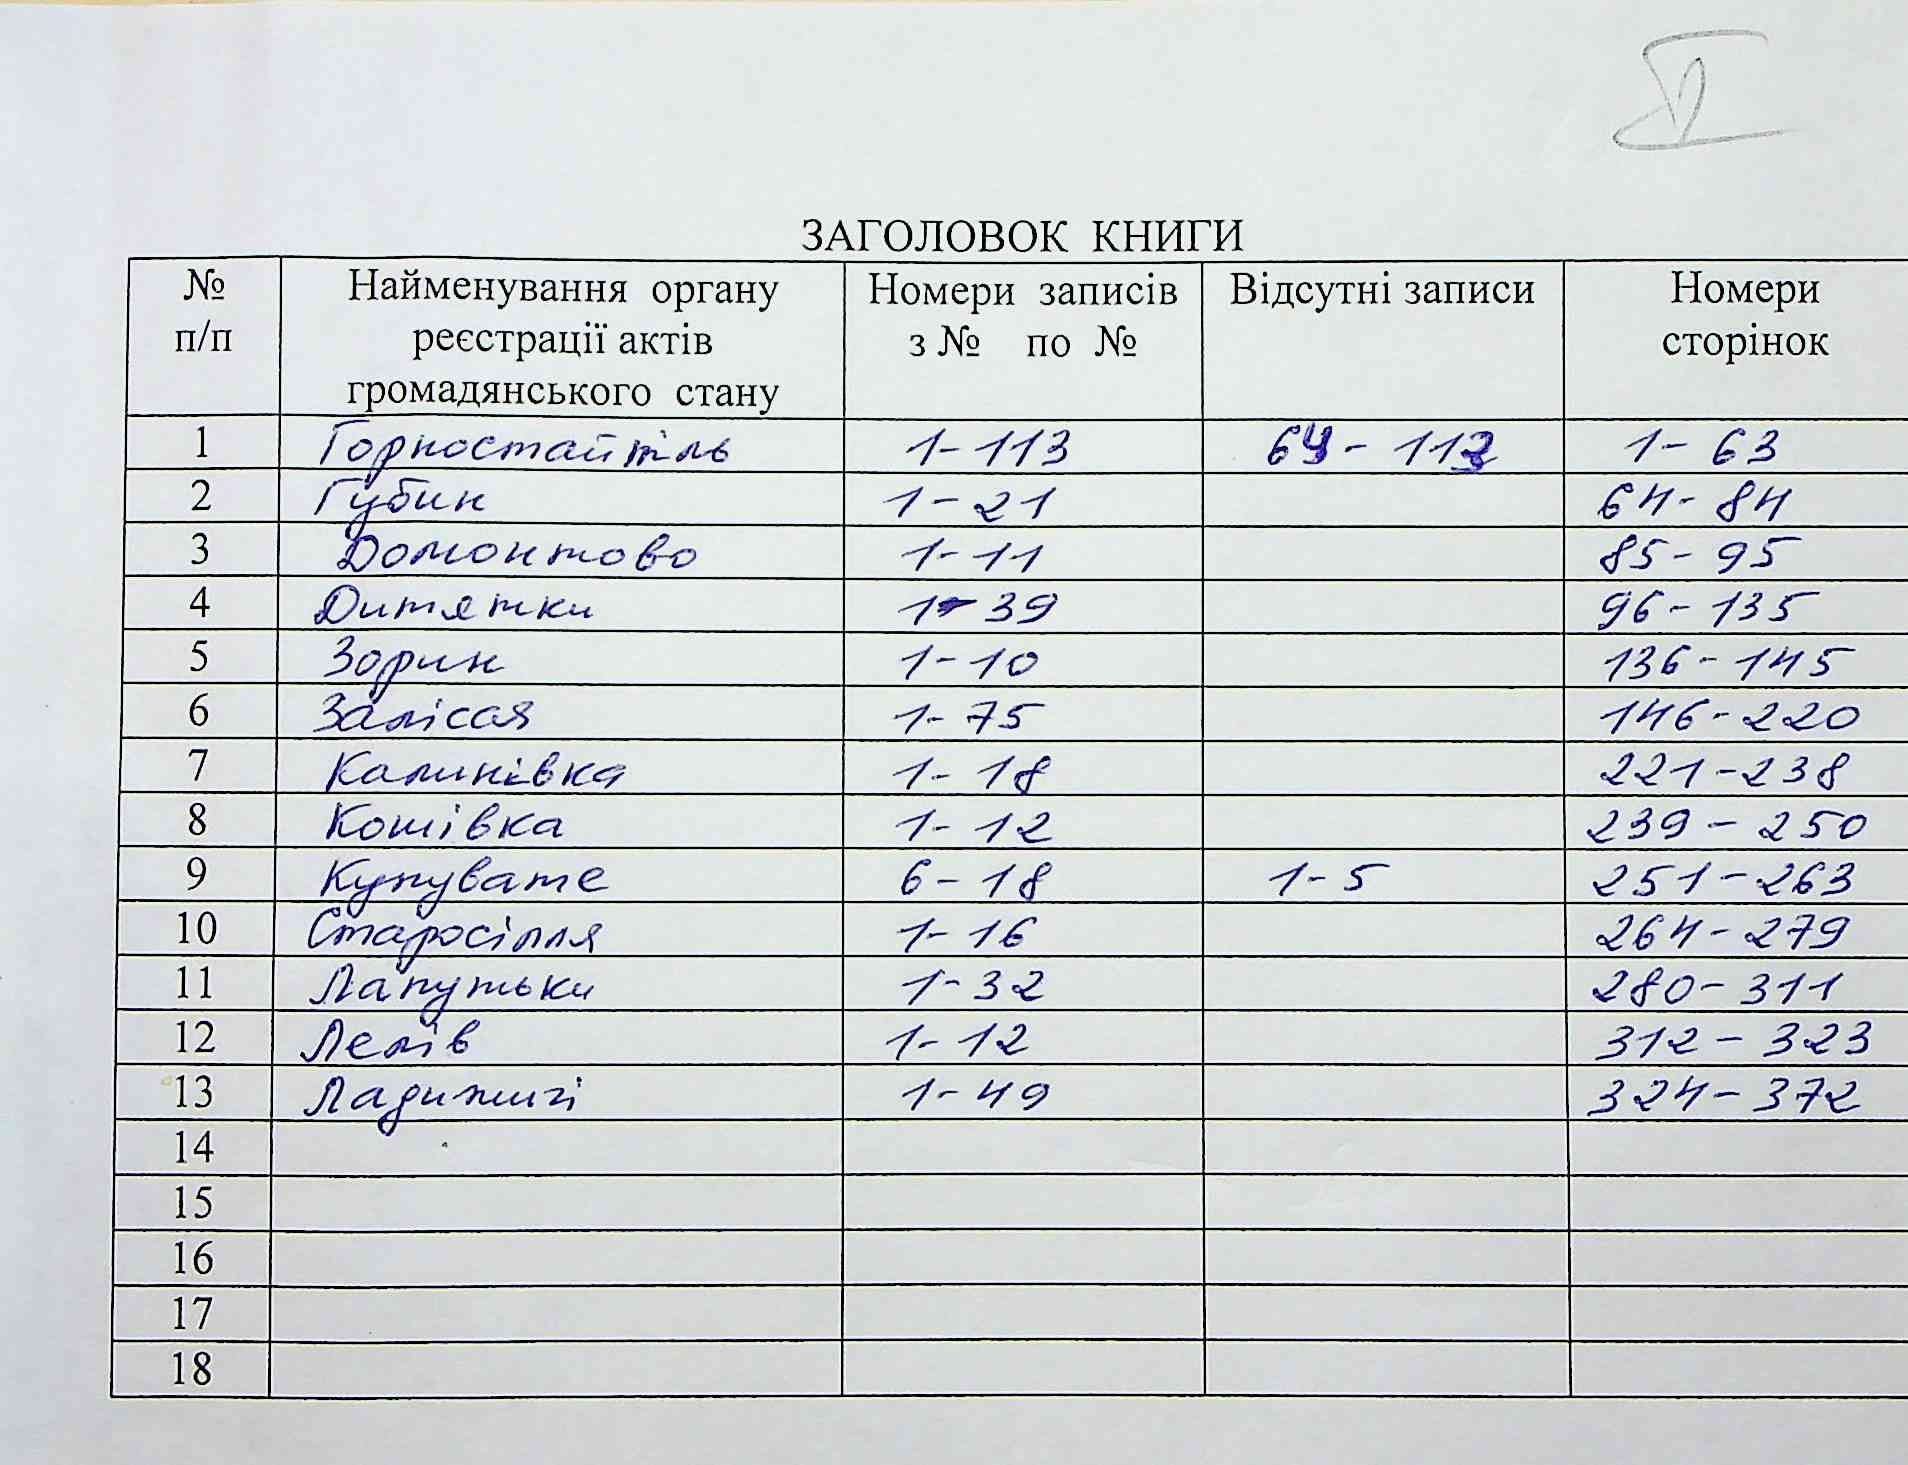 ЗАГОЛОВОК КНИГИ
№ п/п | Найменування органу реєстрації актів громадянського стану | Номери записів з № по № | Відсутні записи | Номери сторінок
1 Горностайпіль 1-113 64-113 1-63
2 Губин 1-21 64-84
3 Домонтово 1-11 85-95
4 Дитятки 1-39 96-135
5 Зорин 1-10 136-145
6 Залісся 1-75 146-220
7 Калинівка 1-18 221-238
8 Кошівка 1-12 239-250
9 Купувате 6-18 1-5 251-263
10 Старосілля 1-16 264-279
11 Лапутьки 1-32 280-311
12 Лелів 1-12 312-323
13 Ладижичі 1-49 324-372
14
15
16
17
18